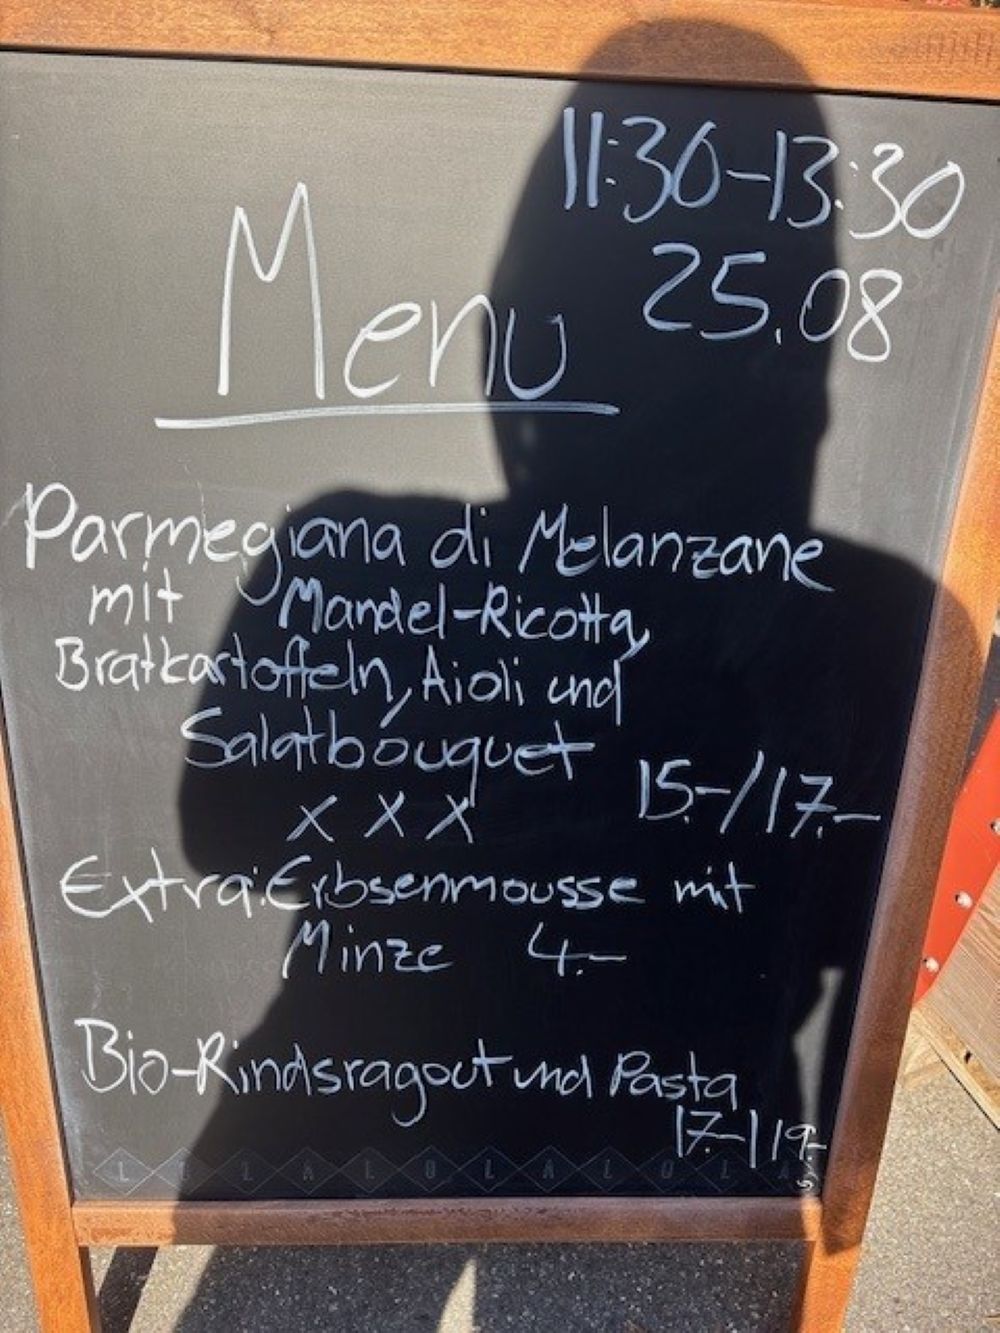 11:30-13:30
25.08
Menu
Parmegiana di Melanzane
mit Mandel-Ricotta,
Bratkartoffeln, Aioli und
Salatbouquet
15.-/17.-
x x x
Extra: Erbsenmousse mit
Minze 4.-
Bio-Rindsragout und Pasta
17.-/19.-